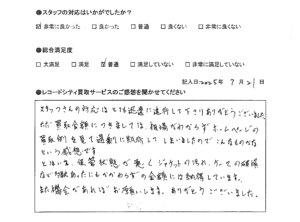 ●スタッフの対応はいかがでしたか?
☑非常に良かった □良かった □普通 □良くない □非常に良くない
●総合満足度
□大満足 □満足 ☑普通 □満足していない □非常に満足していない
記入日:2025年 7月21日
●レコードシティ買取サービスのご感想を聞かせてください
スタッフさんの対応はとても迅速に進行して下さりありがとうございました。
ただ買取金額につきましては、相場がわからずホームページの
買取例を見て過剰に期待してしまいましたのでこんなものかな
という感想です
とはいえ、保管状態が悪くジャケットの汚れ、ケースの破損
など多数あったにもかかわらずの金額には納得しています。
また機会があればお願いします。ありがとうございました。